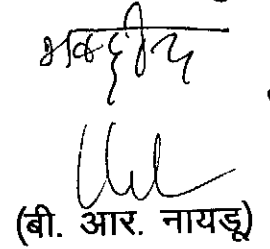 भवदीय
(बी. आर. नायडू)